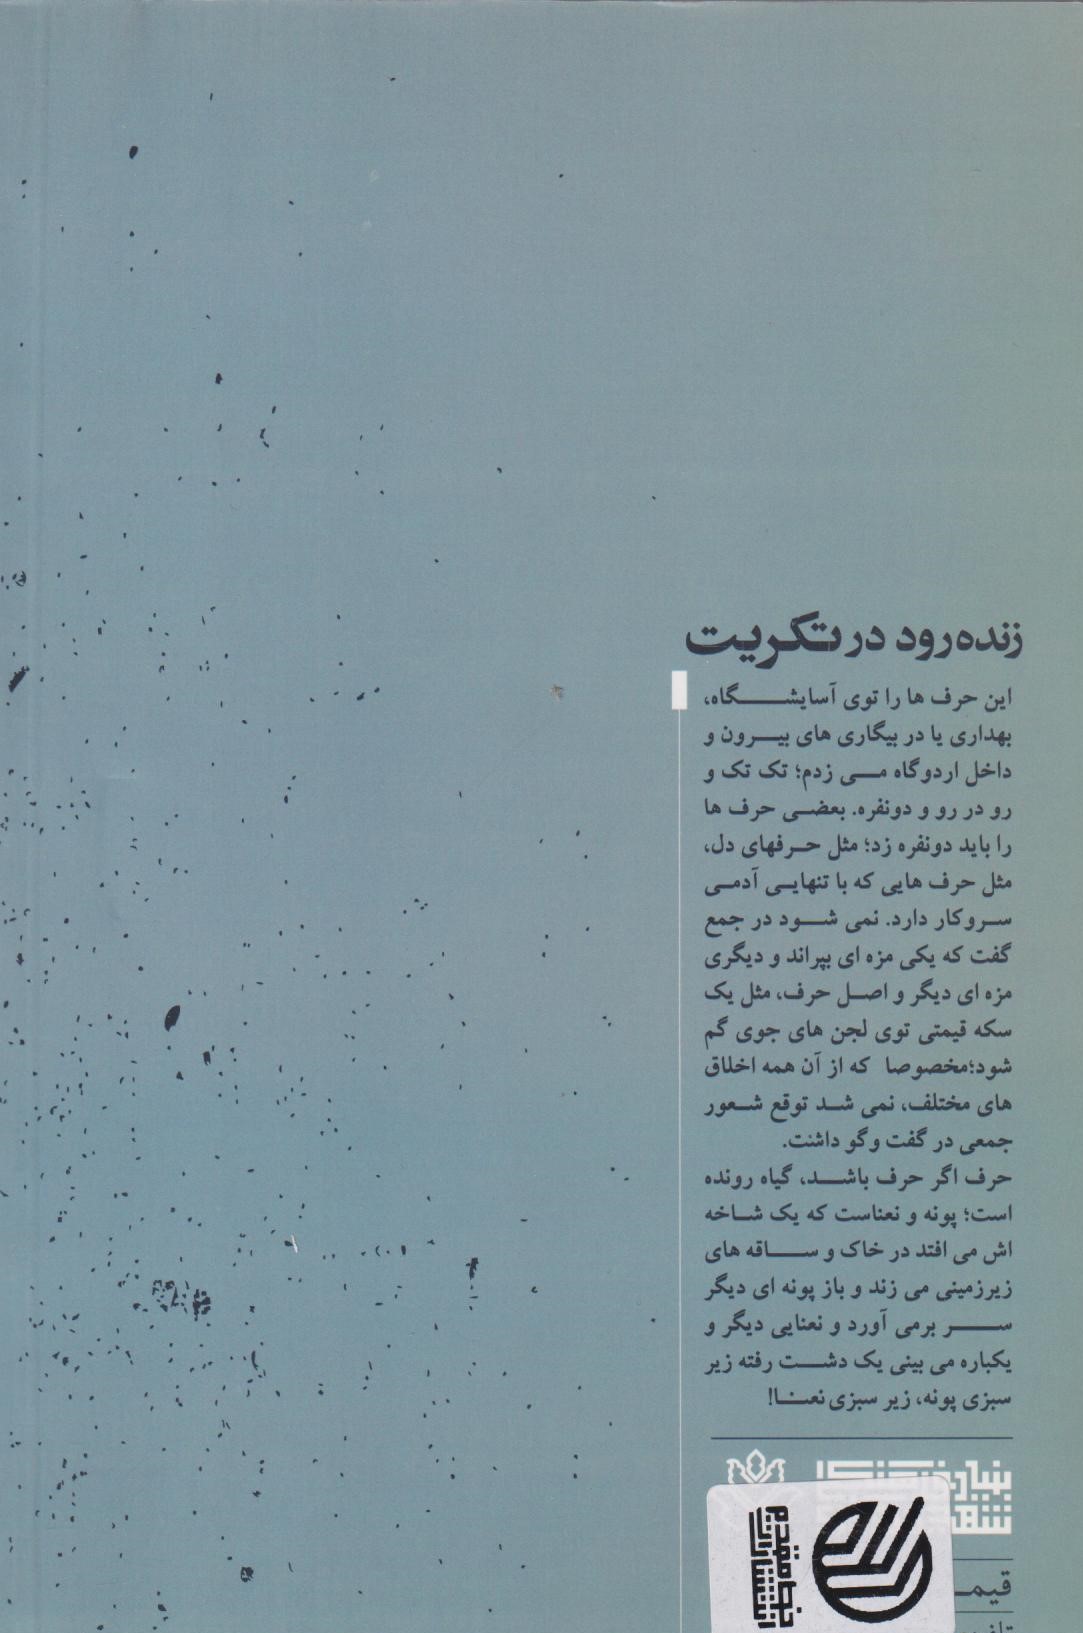 زنده‌رود در تکریت
این حرف ها را توی آسایشگاه،
بهداری یا در بیگاری های بیرون و
داخل اردوگاه می زدم؛ تک تک و
رو در رو و دونفره. بعضی حرف ها
را باید دونفره زد؛ مثل حرفهای دل،
مثل حرف هایی که با تنهایی آدمی
سروکار دارد. نمی شود در جمع
گفت که یکی مزه ای بپراند و دیگری
مزه ای دیگر و اصل حرف، مثل یک
سکه قیمتی توی لجن های جوی گم
شود؛مخصوصا که از آن همه اخلاق
های مختلف، نمی شد توقع شعور
جمعی در گفت وگو داشت.
حرف اگر حرف باشد، گیاه رونده
است؛ پونه و نعناست که یک شاخه
اش می افتد در خاک و ساقه های
زیرزمینی می زند و باز پونه ای دیگر
سر برمی آورد و نعنایی دیگر و
یکباره می بینی یک دشت رفته زیر
سبزی پونه، زیر سبزی نعنا!
انتشارات
خط مقدم